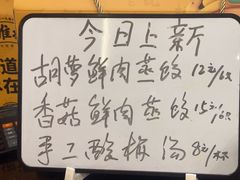 今日上新
胡萝鲜肉蒸饺 12元/6只
香菇鲜肉蒸饺 15元/6只
手工酸梅汤 8元/杯
道